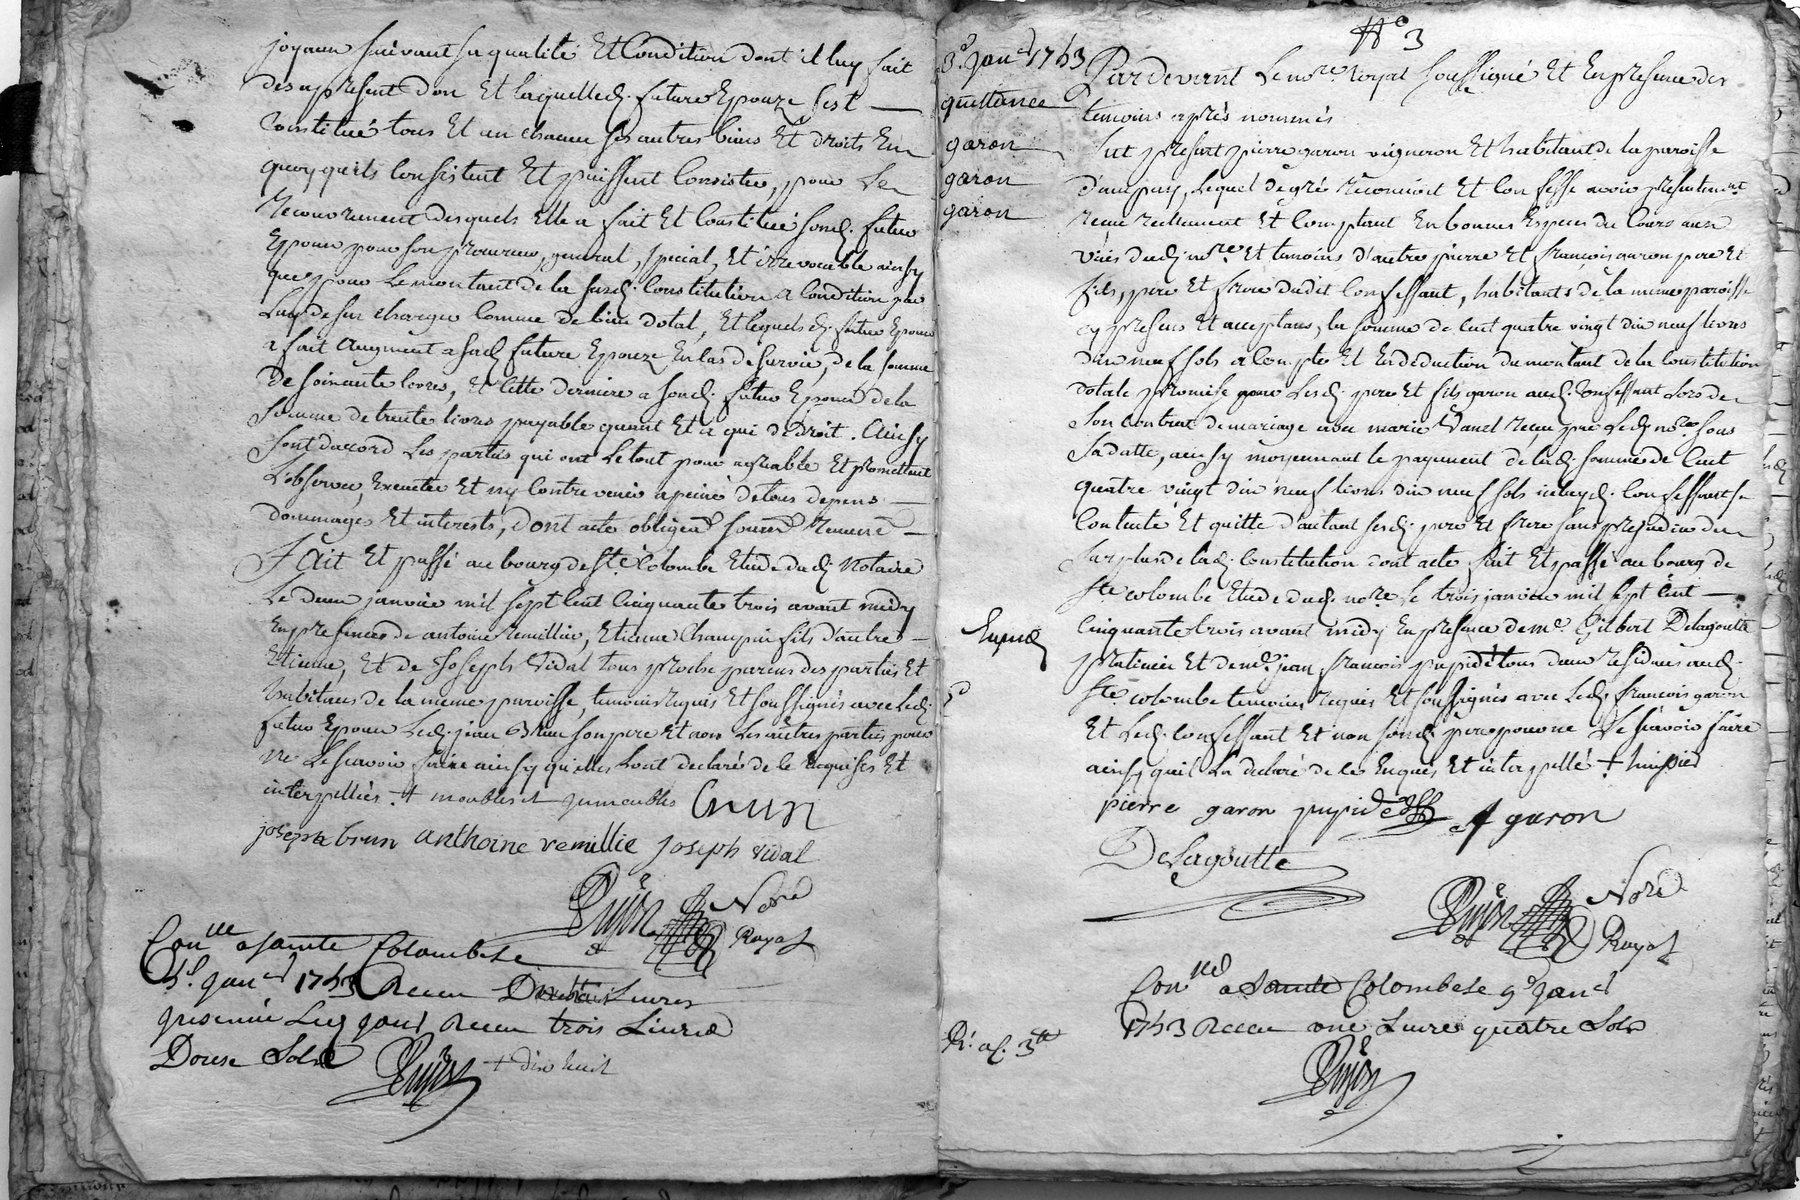 joyaux suivant sa qualité Et Condition dont il luy fait
des apresent don Et laquelle d. future Epouze s'est
Constitué tous Et un chacun ses autres biens Et droits En
quoy quils Consistent Et puissent Consister, pour Le
recouvrement desquels Elle a fait Et Constitué sond. futur
Epoux pour son procureur, general, special, Et irrevocable ainsy
que pour Le montant de la susd. Constitution a Condition par
Luy de s'en charger Comme de bien dotal, Et lequel d. futur Epoux
a fait augment a sad. future Epouze En cas de survie, de la somme
de soixante livres, Et Cette derniere a sond. futur Epoux de la
somme de trente livres payable quant Et a qui de Droit. Ainsy
sont d'accord Les parties qui ont Le tout pour agreable Et promettent
L'observer, Executer Et ny Contrevenir a peine de tous depens
dommages Et interests, dont acte obligeant soumett renoncé
Fait Et passé au bourg de Ste Colombe Etude dud. Notaire
Le deux janvier mil sept Cent Cinquante trois avant midy
En presence de antoine remillier, Etienne Champin fils d'autre
Etienne, Et de Joseph Vidal tous proche parens des parties Et
habitans de la meme paroisse, temoins requis Et soussignés avec Led.
futur Epoux Led. jean Brun son pere Et non Les autres parties pour
ne Le sçavoir faire ainsy quelles L'ont declaré de le requises Et
interpellées. + meubles et jmmeubles Brun
joseph brun anthoine remillie Joseph vidal
Pupier Nore
Royal
Con.lle a sainte Colombe Le
Jan.er 1753 Receu
Receu trois Livres
Douse Sols
Pupier + dix huit
N° 3
3e Janer 1753
quittance
garon
garon
garon
Pardevant Le nore royal soussigné Et En presence des
temoins aprés nommés
fut present pierre garon vigneron Et habitant de la paroisse
d'ampuy, Lequel de gré reconnoit Et Confesse avoir presentement
receu reellement Et Comptant En bonnes Especes du Cours aux
vües dud. nore Et temoins d'autre pierre Et françois garon pere Et
fils, pere Et frere dudit Confessant, habitants de la meme paroisse
cy presens Et acceptans, la somme de Cent quatre vingt dix neuf livres
dix neuf sols a Compte Et En deduction du montant de la Constitution
dotale promise par Lesd. pere Et fils garon aud. Confessant Lors de
son Contrat de mariage avec marie Vanel receu par Led. nore sous
sa datte, ainsy moyennant le payement de lad. somme de Cent
quatre vingt dix neuf livres dix neuf sols icelluy d. Confessant se
Contente Et quitte d'autant sesd. pere Et frere sans prejudice du
surplus de lad. Constitution dont acte, fait Et passé au bourg de
Ste colombe Etude dud. nore Le trois janvier mil sept Cent
Cinquante trois avant midy En presence de me. Gilbert Delagoutte
praticien Et de me. jean françois pupid tous deux residens aud.
Ste colombe temoins requis Et soussignés avec Led. françois garon
Et Led. confessant Et non sond. pere pour ne Le sçavoir faire
ainsy quil La declaré de ce Enquis Et interpellé
pierre garon pupid f garon
Delagoutte
Pupier Nore
Royal
Con.lle a Sainte Colombe Le 9e Janer
1753 Receu une Livre quatre Sols
Pupier